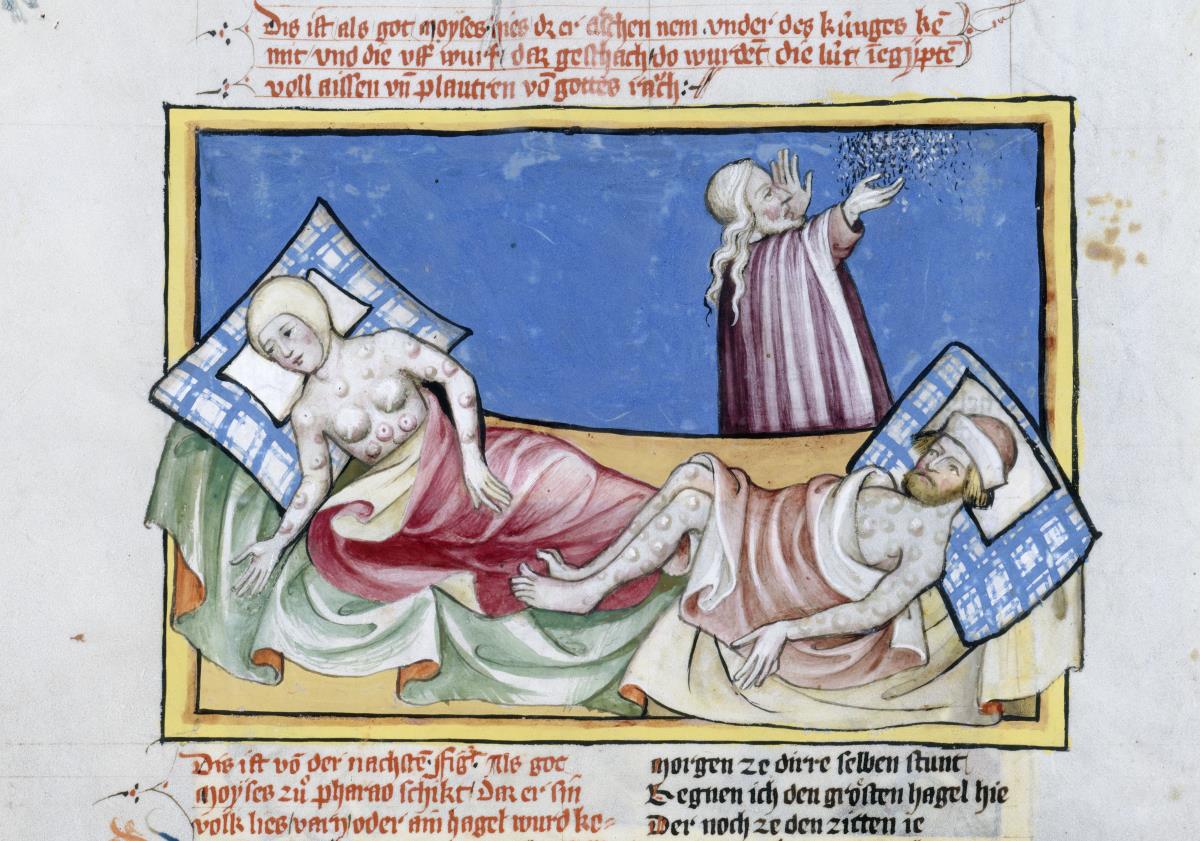 Dis ist als got Moyses hies dz er aschen nem vnder des kúnges ke
mit vnd die vff wurf / daz geschach / do wurdēt die lút ī egyptē
voll aissen vn̄ plautren vō gottes râch :
Dis ist vō der nachstē figͬ Als got
Moyses zů pharao schikt / Daz er sin
volk lies varn oder am hagel wurd ke=
Morgen ze dirre selben stunt
Regnen ich den grôsten hagel hie
Der noch ze den zitten ie